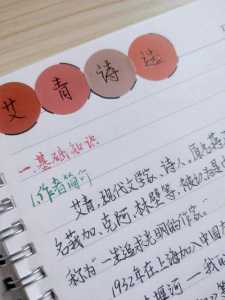 艾青诗选
一.基础知识
1.作者简介
艾青:现代文学家、诗人。原名蒋
名莪加、克阿、林壁等,被认为是
称为"一生追求光明的作家。"
1932年在上海加入中国
堰河—我